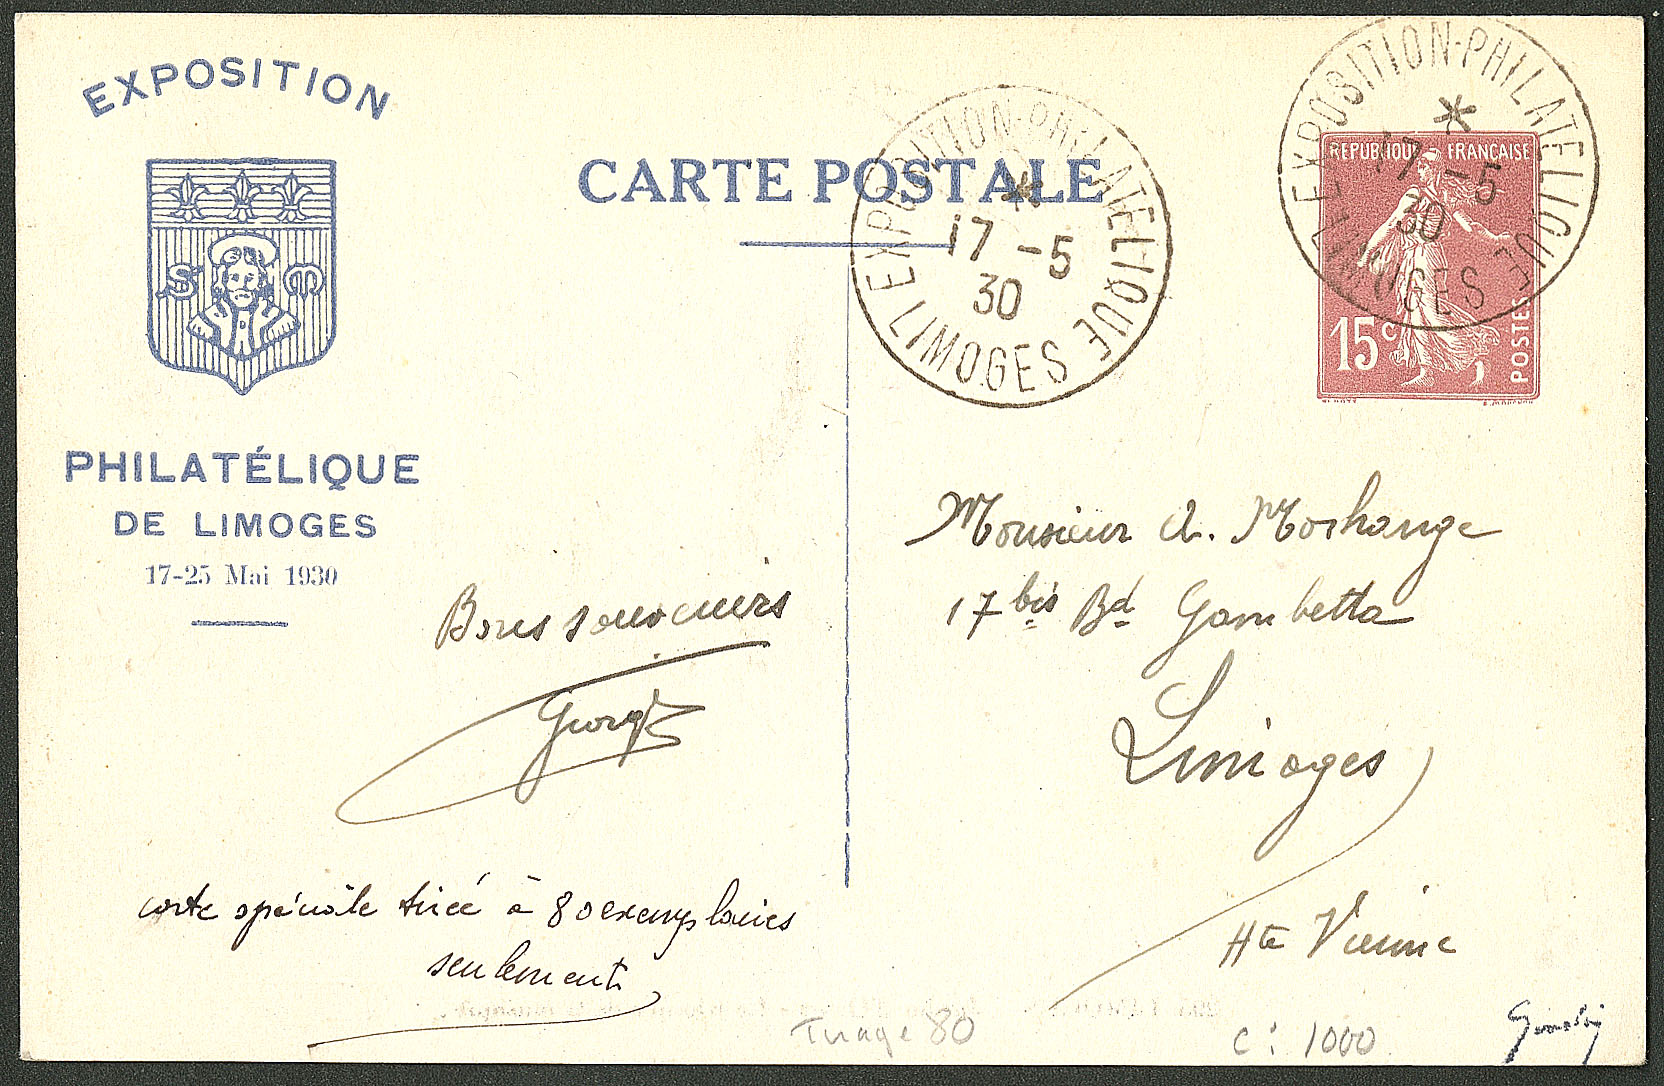 EXPOSITION
S M
PHILATÉLIQUE
DE LIMOGES
17-25 Mai 1930
CARTE POSTALE
EXPOSITION-PHILATELIQUE
17 -5
30
LIMOGES
EXPOSITION-PHILATELIQUE
17 -5
30
LIMOGES
REPUBLIQUE FRANÇAISE
15c POSTES
Bons souvenirs
Monsieur A. Morhange
17 bis Bd Gambetta
Limoges
Hte Vienne
carte spéciale tirée à 80 exemplaires
seulement
Tirage 80
c: 1000